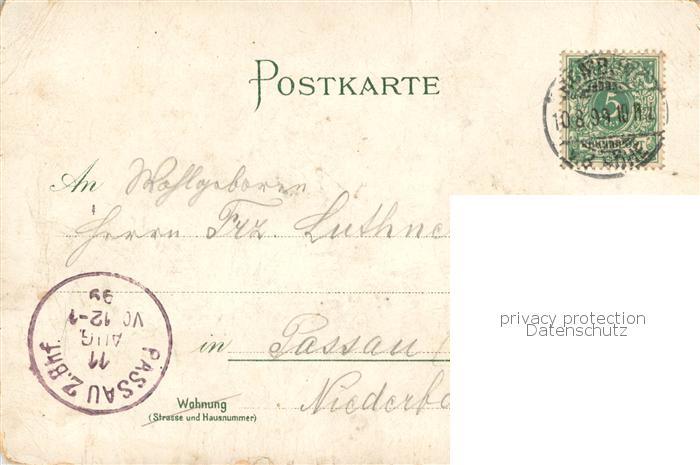 POSTKARTE
5
10.8.99.
An Wohlgeboren
Herrn Frz. Luthne
in Passau
Niederb
Wohnung
(Strasse und Hausnummer)
PASSAU 2.Bhf.
11
AUG.
VO 12-1
99
privacy protection
Datenschutz